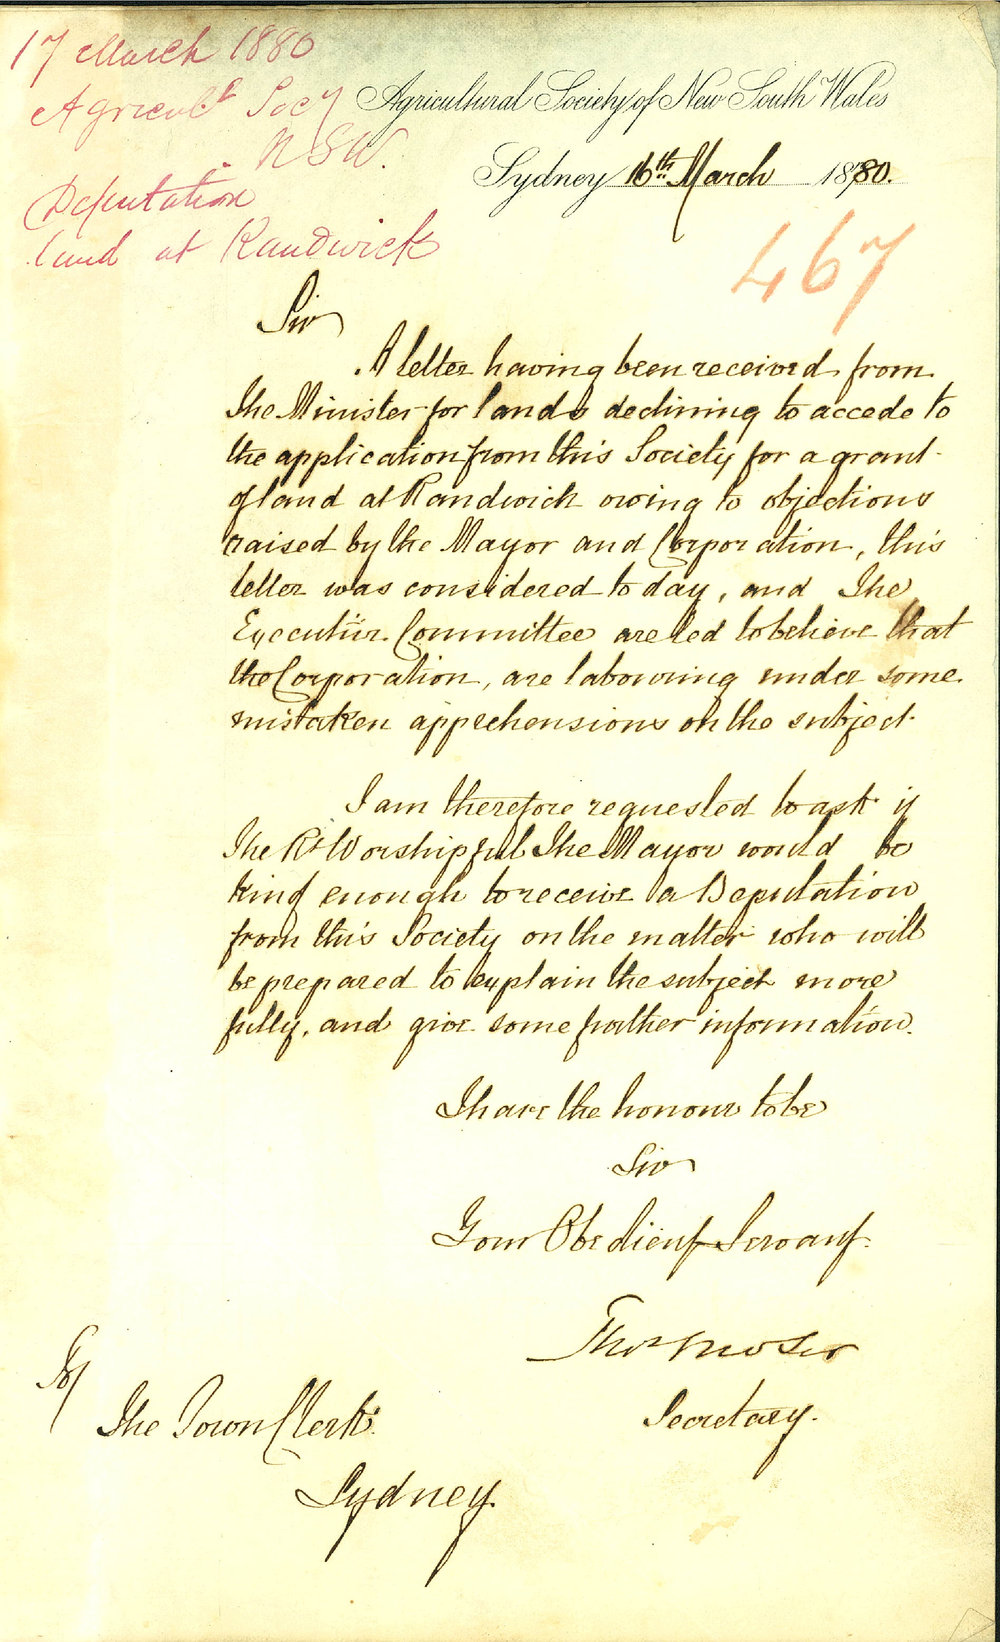 17 March 1880
Agricult Socy
NSW.
Deputation
land at Randwick
Agricultural Society of New South Wales
Sydney 16th March 1880.
467
Sir
A letter having been received from
The Minister for Lands declining to accede to
the application from this Society for a grant
of land at Randwick owing to objections
raised by the Mayor and Corporation, this
letter was considered to day, and The
Executive Committee are led to believe that
the Corporation, are labouring under some
mistaken apprehensions on the subject.
I am therefore requested to ask if
The Rt Worshipful The Mayor would be
kind enough to receive a Deputation
from this Society on the matter who will
be prepared to explain the subject more
fully, and give some further information.
I have the honour to be
Sir
Your Obedient Servant
Thos
Secretary.
To/
The Town Clerk.
Sydney.